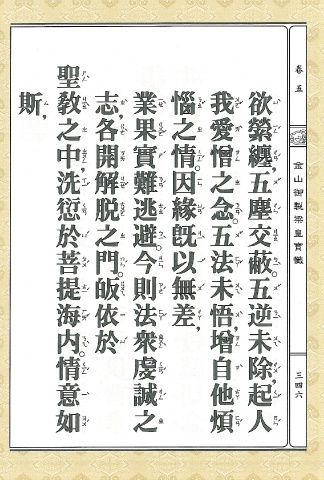 卷五
金山御製梁皇寶懺
三四六
欲縈纏,五塵交蔽。五逆未除,起人
我愛憎之念。五法未悟,增自他煩
惱之情。因緣旣以無差,
業果實難逃避。今則法衆虔誠之
志,各開解脫之門。皈依於
聖敎之中,洗愆於菩提海内。情意如
斯,